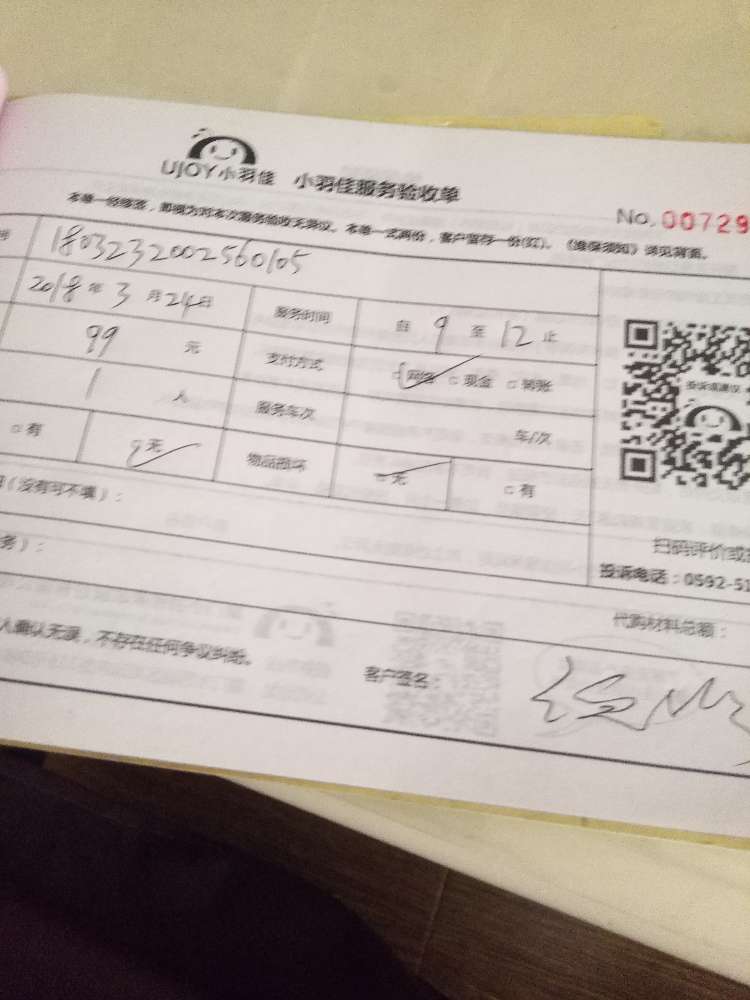 UJOY小羽佳 小羽佳服务验收单
本单一经签字，即视为对本次服务验收无异议。本单一式两份，客户留存一份(红)。《维保须知》详见背面。
No. 00729
1803232002560105
2018年3月24日 服务时间 自9至12止
99元 支付方式 网络 现金 转账
1人 服务车次 车/次
有 无 物品损坏 无 有
投诉或建议
(没有可不填)：
扫码评价或
务)：
投诉电话：0592-51
代购材料总额：
人确认无误，不存在任何争议纠纷。
客户签名：